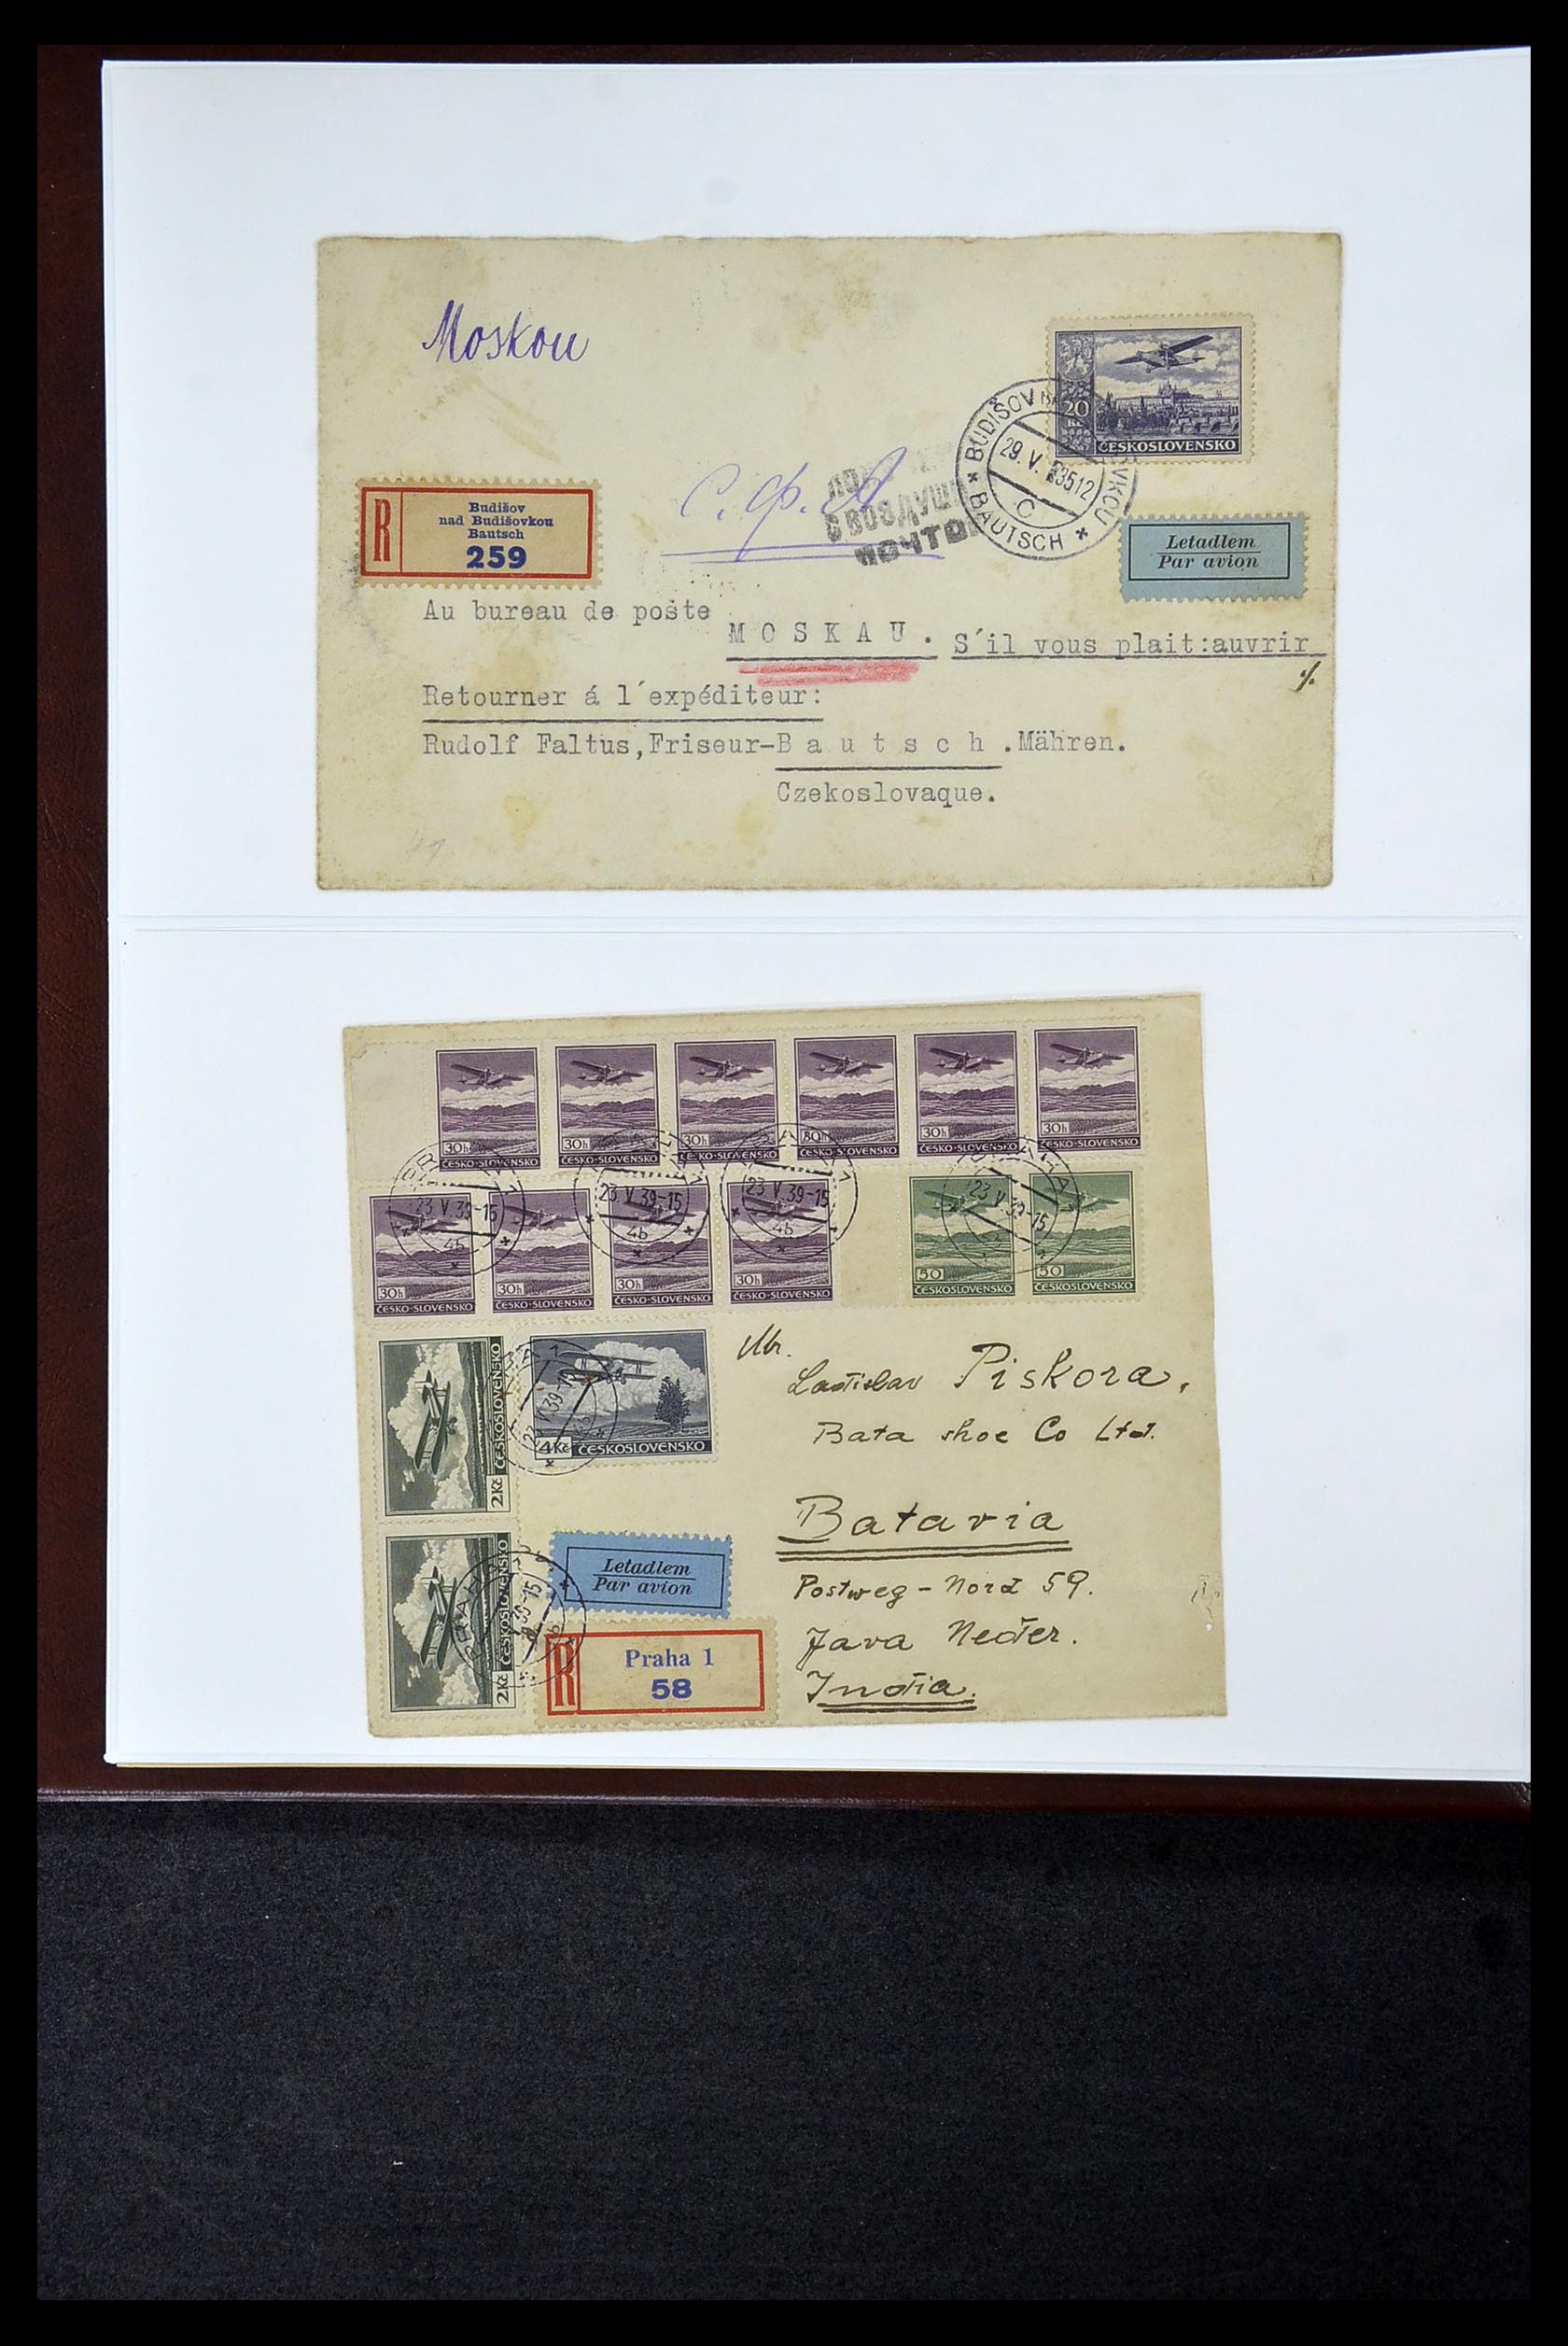 Moskou
20
Kč
ČESKOSLOVENSKO
BUDIŠOV
BAUTSCH
29. V. 35 12
C
С. Ф. А
ПОЧТО
R
Budišov
nad Budišovkou
Bautsch
259
Letadlem
Par avion
Au bureau de poste
MOSKAU. S´il vous plait:auvrir
%
Retourner á l´expéditeur:
Rudolf Faltus,Friseur-Bautsch.Mähren.
Czekoslovaque.
30h 30h 30h 30h 30h 30h
ČESKO-SLOVENSKO ČESKO-SLOVENSKO ČESKO-SLOVENSKO ČESKO-SLOVENSKO ČESKO-SLOVENSKO ČESKO-SLOVENSKO
23 V. 39-15
4b
23 V. 39-15
4b
23 V. 39-15
4b
23 V. 39-15
30h 30h 30h 30h 50 50
ČESKO-SLOVENSKO ČESKO-SLOVENSKO ČESKO-SLOVENSKO ČESKO-SLOVENSKO ČESKOSLOVENSKO ČESKOSLOVENSKO
2Kč ČESKOSLOVENSKO
4Kč ČESKOSLOVENSKO
2Kč ČESKOSLOVENSKO
Mr.
Ladislav Piskora,
Bata shoe Co Ltd.
Batavia
Postweg - Nord 59.
Java Neder.
India.
Letadlem
Par avion
R
Praha 1
58